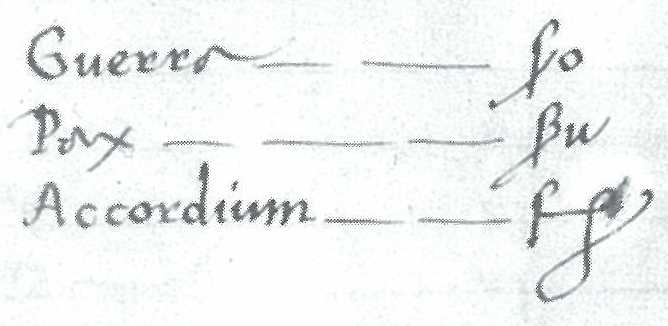 Guerra — — fo
Pax — — — fu
Accordium — —